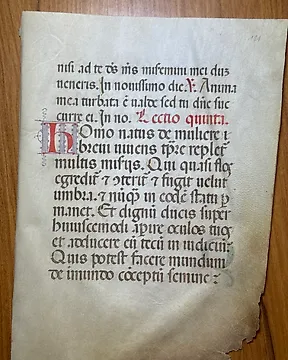 nisi ad te ds ms miseremini mei dum
ueneris. In nouissimo die. V. Anima
mea turbata e ualde sed tu dne suc
curre ei. In no. Lectio quinta.
Homo natus de muliere i
breui uiuens tpre repletꝰ
multis miserijs. Qui quasi flos
egreditᷣ & ꝯteritᷣ & fugit uelut
umbra. & nuqꝫ in eodē statu p
manet. Et dignū ducis super
huiuscemodi aperire oculos tuos
et adducere eū tecū in iudiciū?
Quis potest facere mundum
de inmundo cōceptū semine?